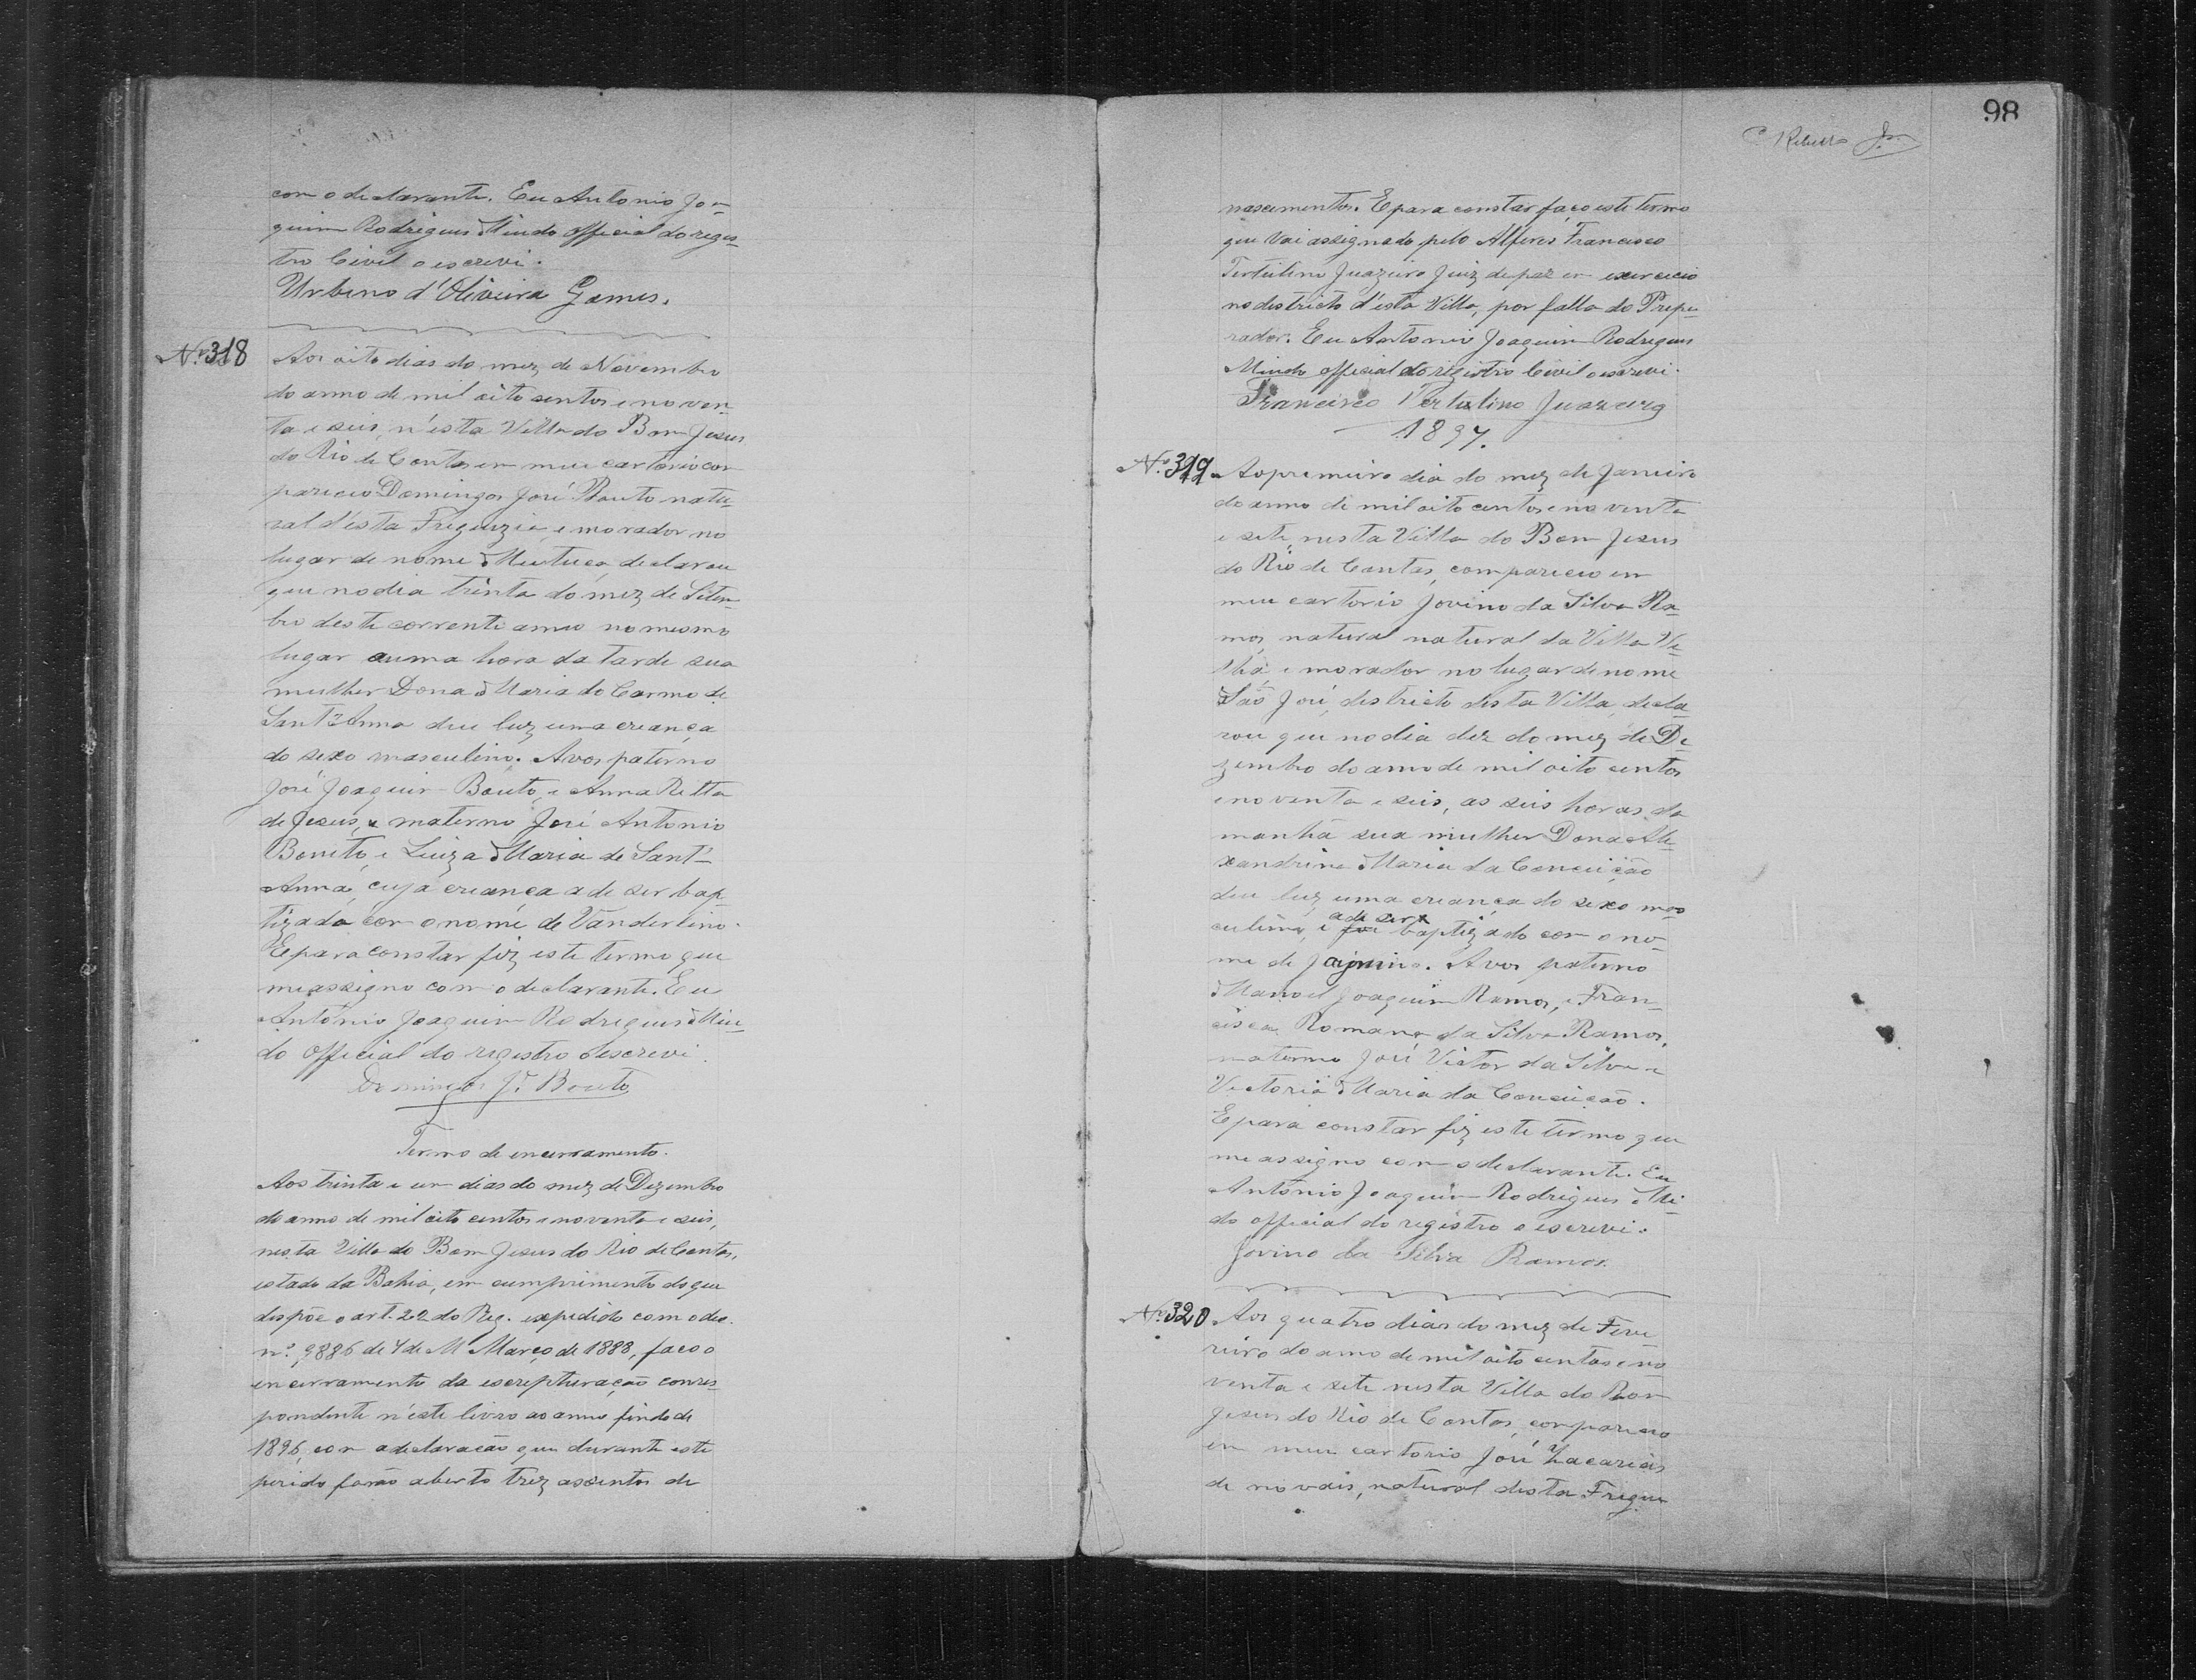 com o declarante. Eu Antonio Joa-
quim Rodrigues Mindo official do regis-
tro Civil o escrevi.
Urbino d'Oliveira Gomes.
Nº 318
Aos oito dias do mez de Novembro
do anno de mil oito centos e noven-
ta e seis, n'esta Villa do Bom Jesus
do Rio de Contas em meu cartorio com
pareceo Domingos José Bouto natu-
ral d'esta Freguezia, e morador no
lugar de nome Mutuca, declarou
que no dia trinta do mez de Setem-
bro deste corrente anno no mesmo
lugar a uma hora da tarde sua
mulher Dona Maria do Carmo de
Sant'Anna deu luz uma creança
do sexo masculino. Avos paterno
José Joaquim Bouto, e Anna Ritta
de Jesus, e materno José Antonio
Bonito, e Luiza Maria de Sant'-
Anna, cuja creança a de ser bap
tizada com o nome de Vanderlino.
E para constar fiz este termo que
me assigno com o declarante. Eu
Antonio Joaquim Rodrigues Min-
do official do registro o escrevi.
Domingos J.e Bouto
Termo de encerramento.
Aos trinta e um dias do mez de Dezembro
do anno de mil oito centos e noventa e seis,
nesta Villa do Bom Jesus do Rio de Contas,
estado da Bahia, em cumprimento do que
dispõe o art. 22 do Reg. expedido com o dec.
nº 9886 de 7 de M Março de 1888, faço o
encerramento da escripturação corres-
pondente n'este livro ao anno findo de
1896, com a declaração que durante este
perido forão aberto trez assentos de
98
C Rebello Jr.
nascimentos. E para constar faço este termo
que vai assignado pelo Alferes Francisco
Tertulino Juazeiro Juiz de paz em exercicio
no districto d'esta Villa, por falta do Prepa-
rador. Eu Antonio Joaquim Rodrigues
Mindo official do registro Civil o escrevi.
Francisco Tertulino Juazeiro
1897.
Nº 319
Ao premeiro dia do mez de Janeiro
do anno de mil oito centos e noventa
e sete, nesta Villa do Bom Jesus
do Rio de Contas, compareceo em
meu cartorio Jovino da Silva Ra-
mos, natural natural da Villa Ve-
lha, e morador no lugar de nome
São José, districto desta Villa, decla-
rou que no dia dez do mez de De-
zembro do anno de mil oito centos
e noventa e seis, as seis horas da
manhã sua mulher Dona Ale-
xandrina Maria da Conceição
deu luz uma creança do sexo mas
culino, e foi a de ser baptizado com o no-
me de . Avos paterno
Manoel Joaquim Ramos, e Fran-
cisca Romana da Silva Ramos,
materno José Victor da Silva e
Victoria Maria da Conceição.
E para constar fiz este termo que
me assigno com o declarante. Eu
Antonio Joaquim Rodrigues Min-
do official do registro o escrevi.
Jovino da Silva Ramos.
Nº 320
Aos quatro dias do mez de Feve
reiro do anno de mil oito centos e no
venta e sete nesta Villa do Bom
Jesus do Rio de Contas, compareceo
em meu cartorio José Zacarias
de novais, natural desta Fregue